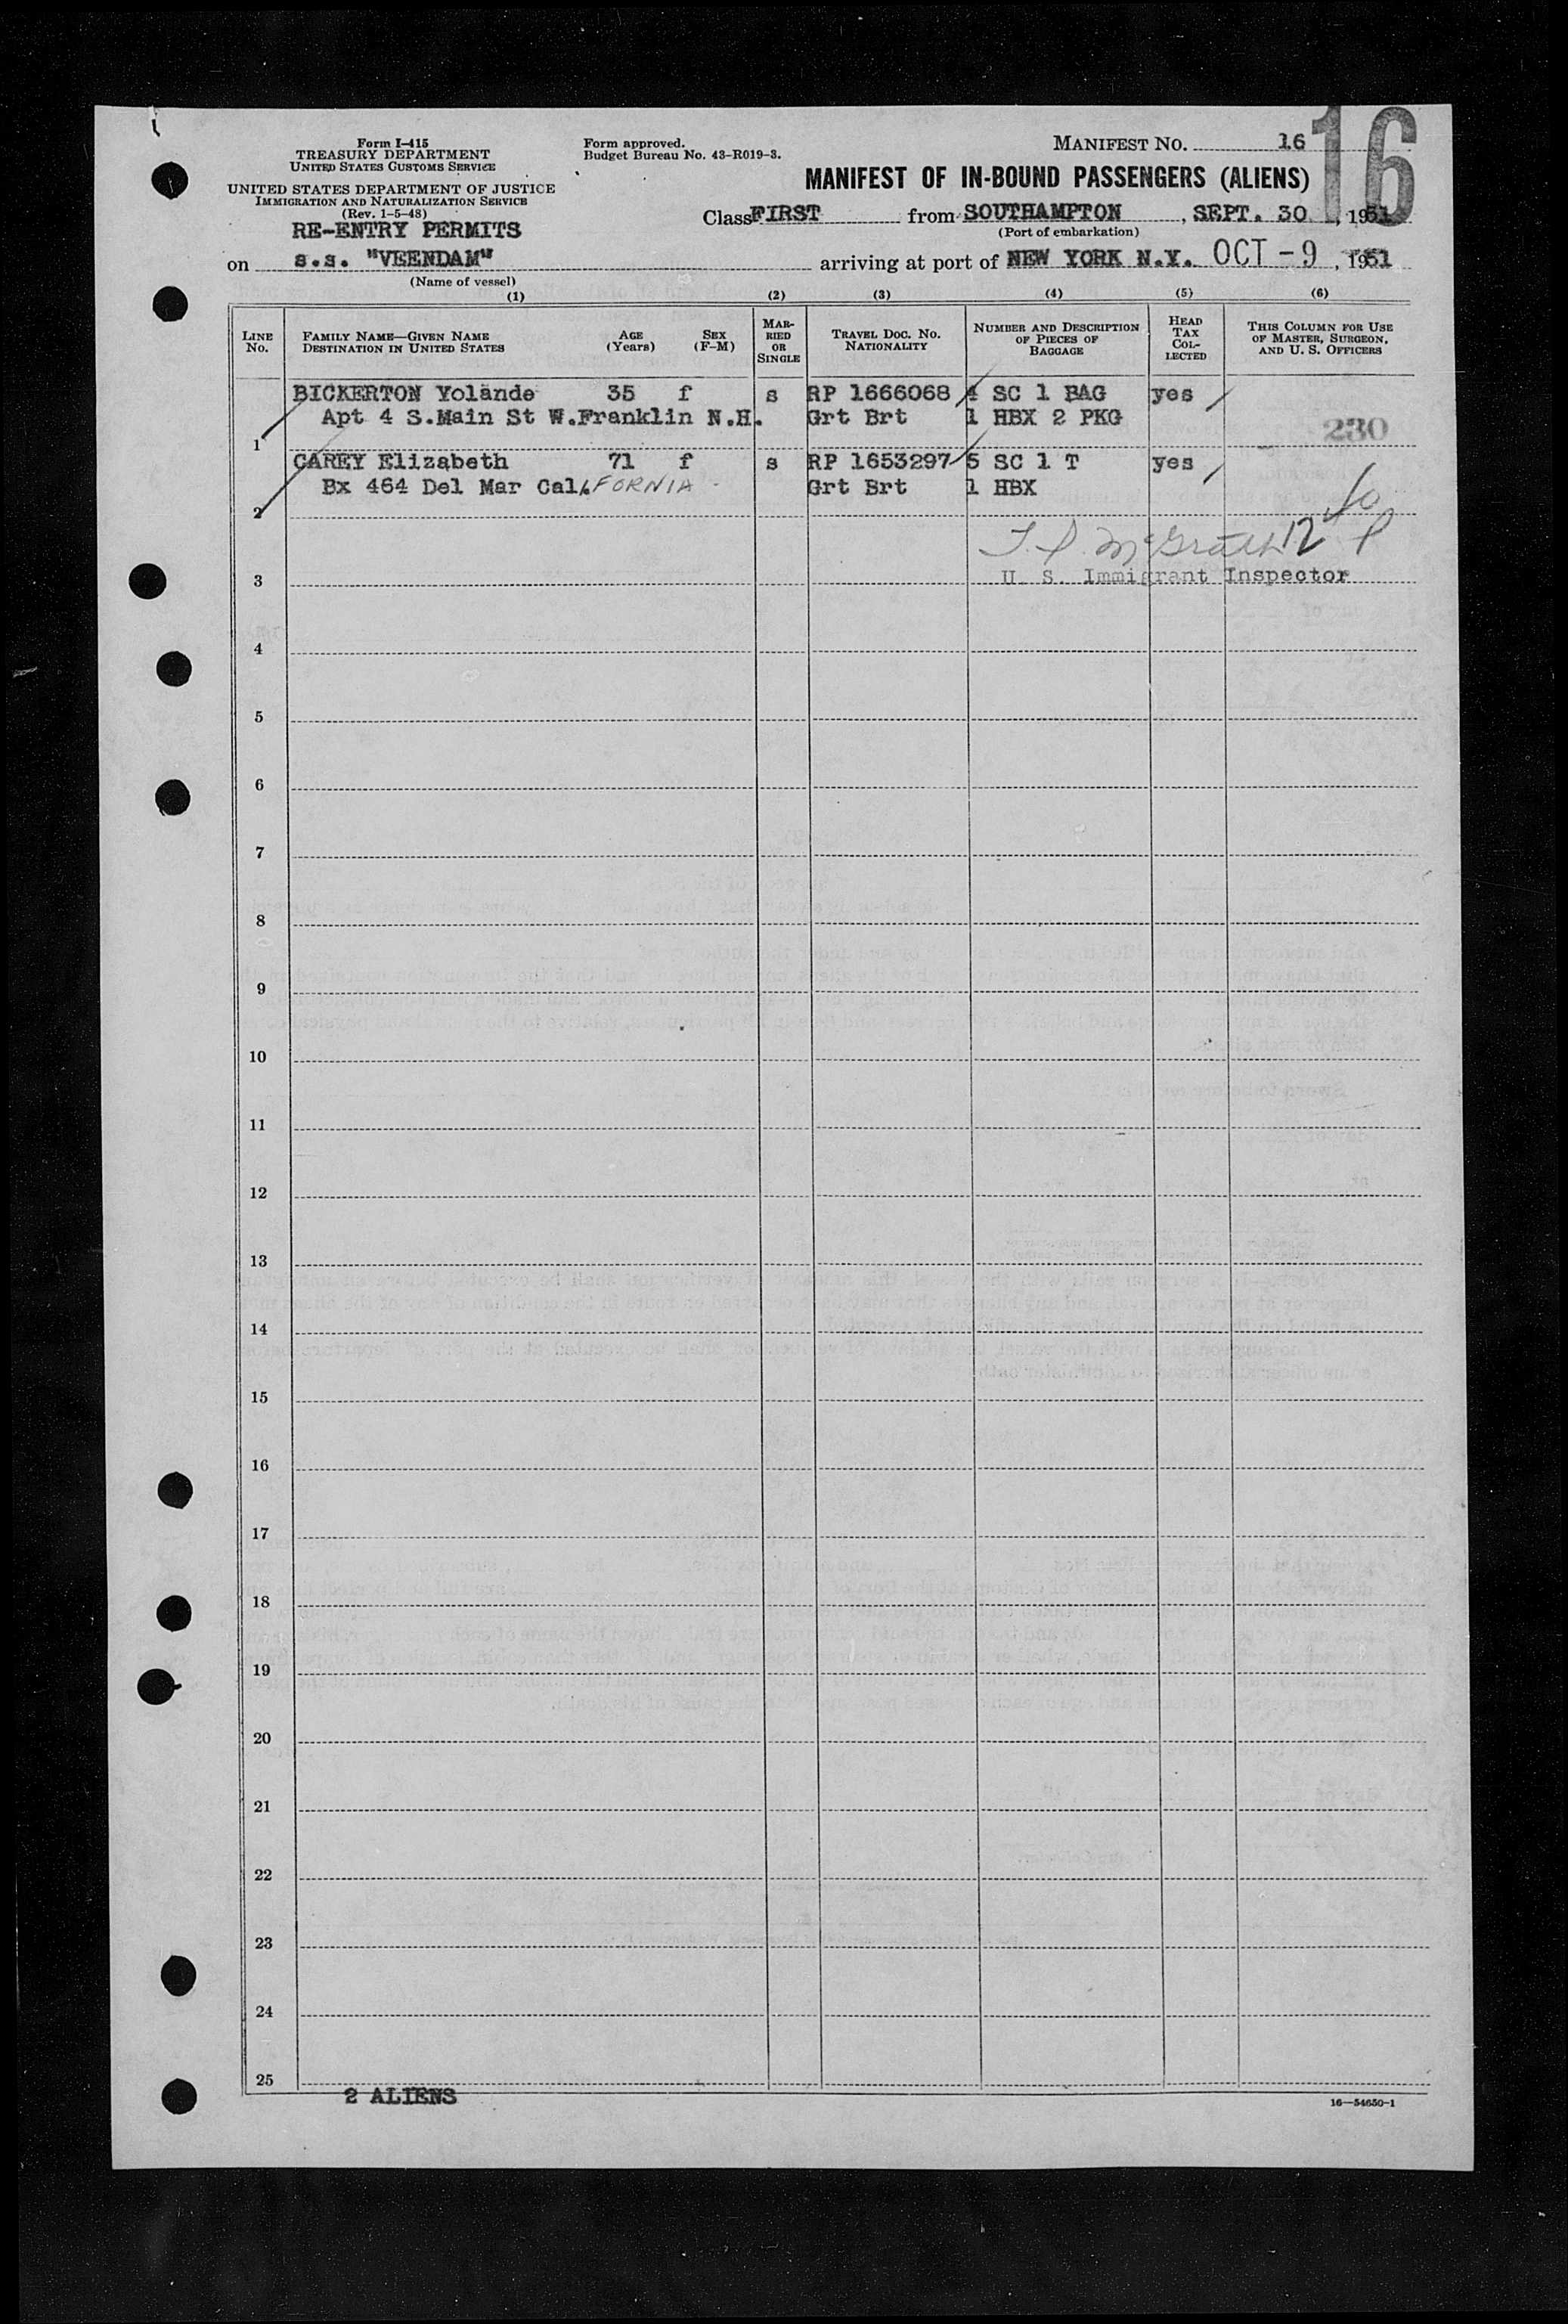 Form I-415
TREASURY DEPARTMENT
UNITED STATES CUSTOMS SERVICE
UNITED STATES DEPARTMENT OF JUSTICE
IMMIGRATION AND NATURALIZATION SERVICE
(Rev. 1-5-48)
RE-ENTRY PERMITS
Form approved.
Budget Bureau No. 43-R019-3.
MANIFEST NO. 16
16
MANIFEST OF IN-BOUND PASSENGERS (ALIENS)
Class FIRST from SOUTHAMPTON, SEPT. 30, 1951
(Port of embarkation)
on s.s. "VEENDAM" arriving at port of NEW YORK N.Y. OCT -9, 1951
(Name of vessel)
(1) (2) (3) (4) (5) (6)
LINE No.
FAMILY NAME—GIVEN NAME
DESTINATION IN UNITED STATES
AGE (Years)
SEX (F-M)
MARRIED OR SINGLE
TRAVEL DOC. NO.
NATIONALITY
NUMBER AND DESCRIPTION OF PIECES OF BAGGAGE
HEAD TAX COLLECTED
THIS COLUMN FOR USE OF MASTER, SURGEON, AND U. S. OFFICERS
BICKERTON Yolande 35 f s RP 1666068 4 SC 1 BAG yes
Apt 4 S.Main St W.Franklin N.H. Grt Brt 1 HBX 2 PKG
1 230
CAREY Elizabeth 71 f s RP 1653297 5 SC 1 T yes
Bx 464 Del Mar CalIFORNIA Grt Brt 1 HBX
2
McGrath 12
3 U. S. Immigrant Inspector
4
5
6
7
8
9
10
11
12
13
14
15
16
17
18
19
20
21
22
23
24
25
2 ALIENS
16—54650-1